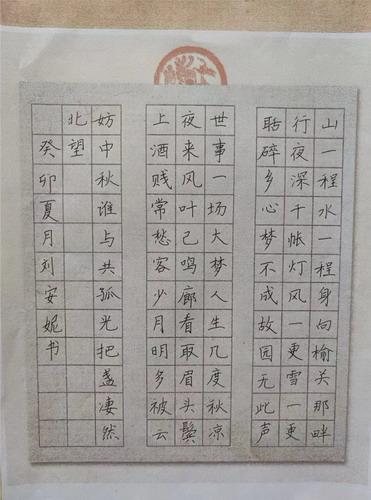 山一程水一程身向榆关那畔
行夜深千帐灯风一更雪一更
聒碎乡心梦不成故园无此声
世事一场大梦人生几度秋凉
夜来风叶已鸣廊看取眉头鬓
上酒贱常愁客少月明多被云
妨中秋谁与共孤光把盏凄然
北望
癸卯夏月刘安妮书